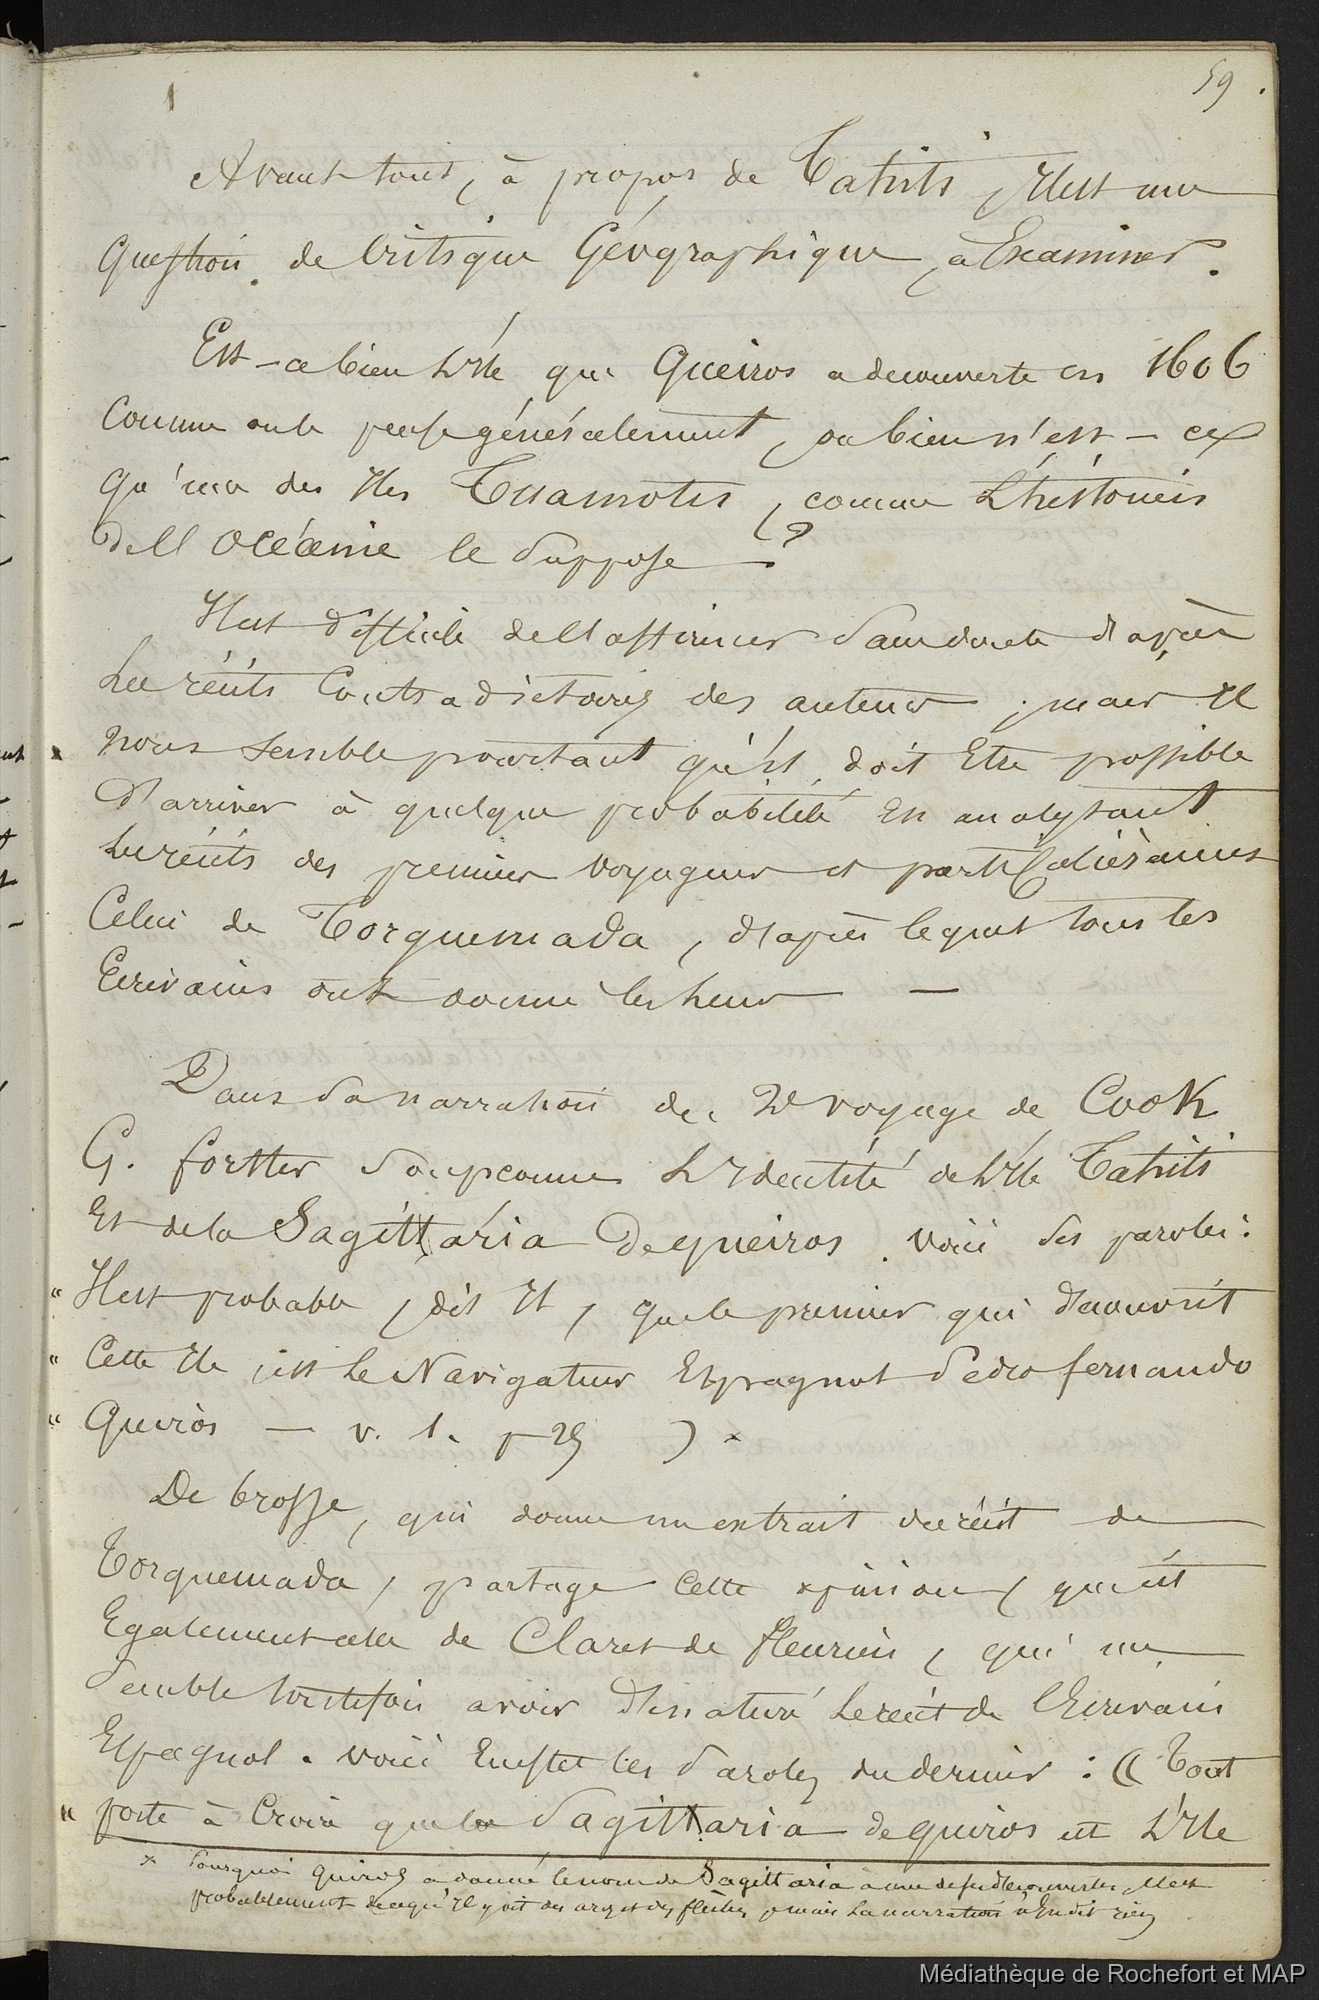 59.
Avant tout, à propos de Tahiti, Il est une
Question de Critique Géographique, à Examiner.
Est-ce bien L'Ile que Queiros a decouverte en 1606
Comme on le pense généralement, ou bien n'est-ce
qu'une des Iles Tuamotu, comme L'historien
de L'Océanie le Suppose?
Il est difficile de L'affirmer Sans doute d'après
Les récits Contradictoires des auteurs; mais Il
nous Semble pourtant qu'il doit Etre possible
D'arriver à quelque probabilité En analysant
Les récits des premiers voyageurs et particulièrement
Celui de Torquemada, d'après lequel tous les
Ecrivains ont donné les leurs —
Dans Sa narration du 2e voyage de Cook
G. forster Soupçonne L'Identité de L'Ile Tahiti
Et de la Sagittaria De queiros. voici Ses paroles:
" Il est probable, dit Il, que le premier qui découvrit
" Cette Ile, est Le Navigateur Espagnol Pedro fernando
" Queiros — v. 1. p 25 ) x
De brosse, qui donne un extrait du récit de
Torquemada, partage Cette opinion, qui est
Egalement celle de Claret de fleurieu, qui me
Semble toutefois avoir dénaturé Le récit de L'Ecrivain
Espagnol. voici En effet les Paroles du dernier: « Tout
" porte à Croire que la Sagittaria de quiros est L'Ile
x Pourquoi Quiros a donné le nom de Sagittaria à une de ses découvertes, Il est
probablement de ce qu'Il y vit des arcs et des flèches, mais La narration n'En dit rien
Médiathèque de Rochefort et MAP